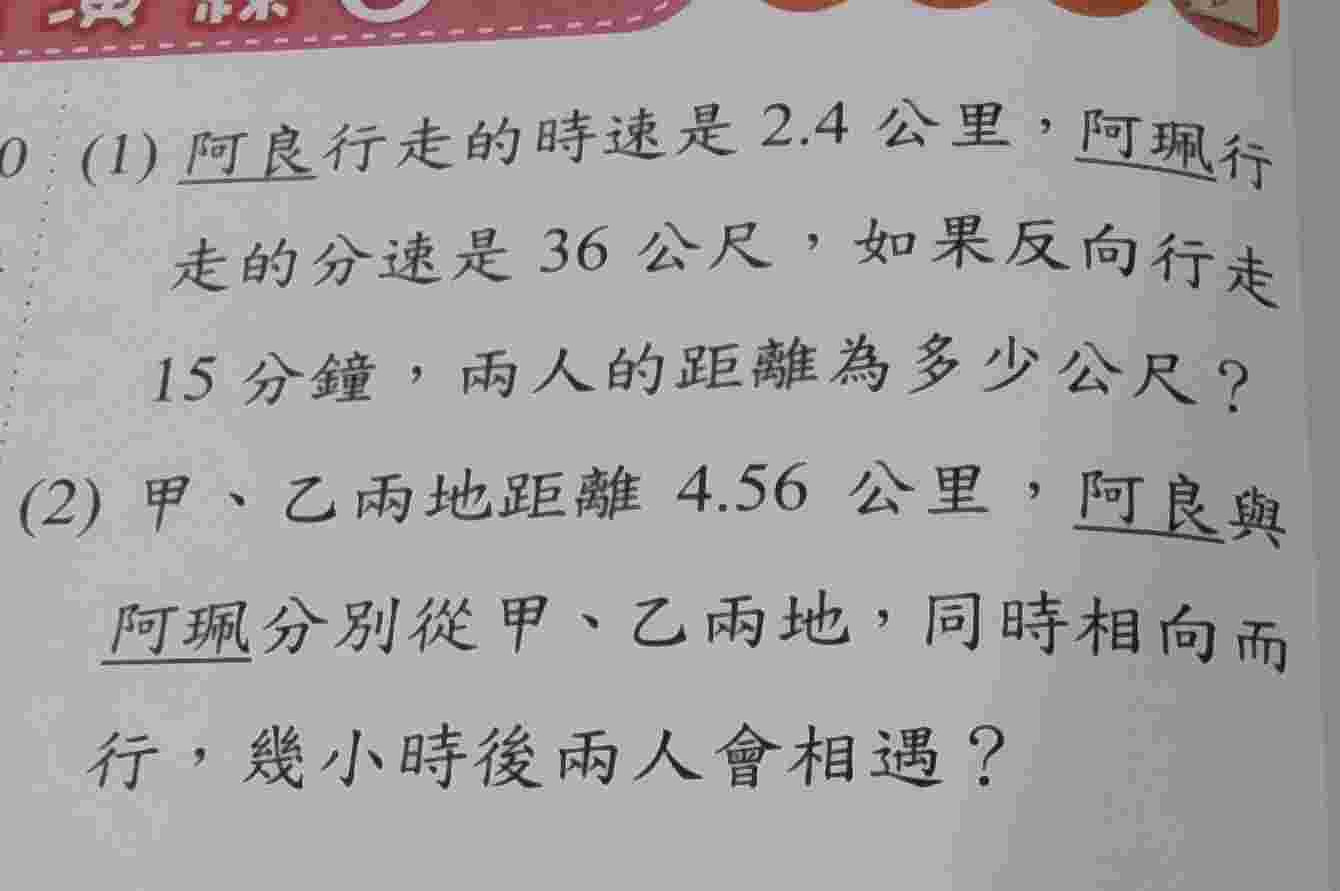 0 (1) 阿良行走的時速是 2.4 公里，阿珮行
走的分速是 36 公尺，如果反向行走
15 分鐘，兩人的距離為多少公尺？
(2) 甲、乙兩地距離 4.56 公里，阿良與
阿珮分別從甲、乙兩地，同時相向而
行，幾小時後兩人會相遇？